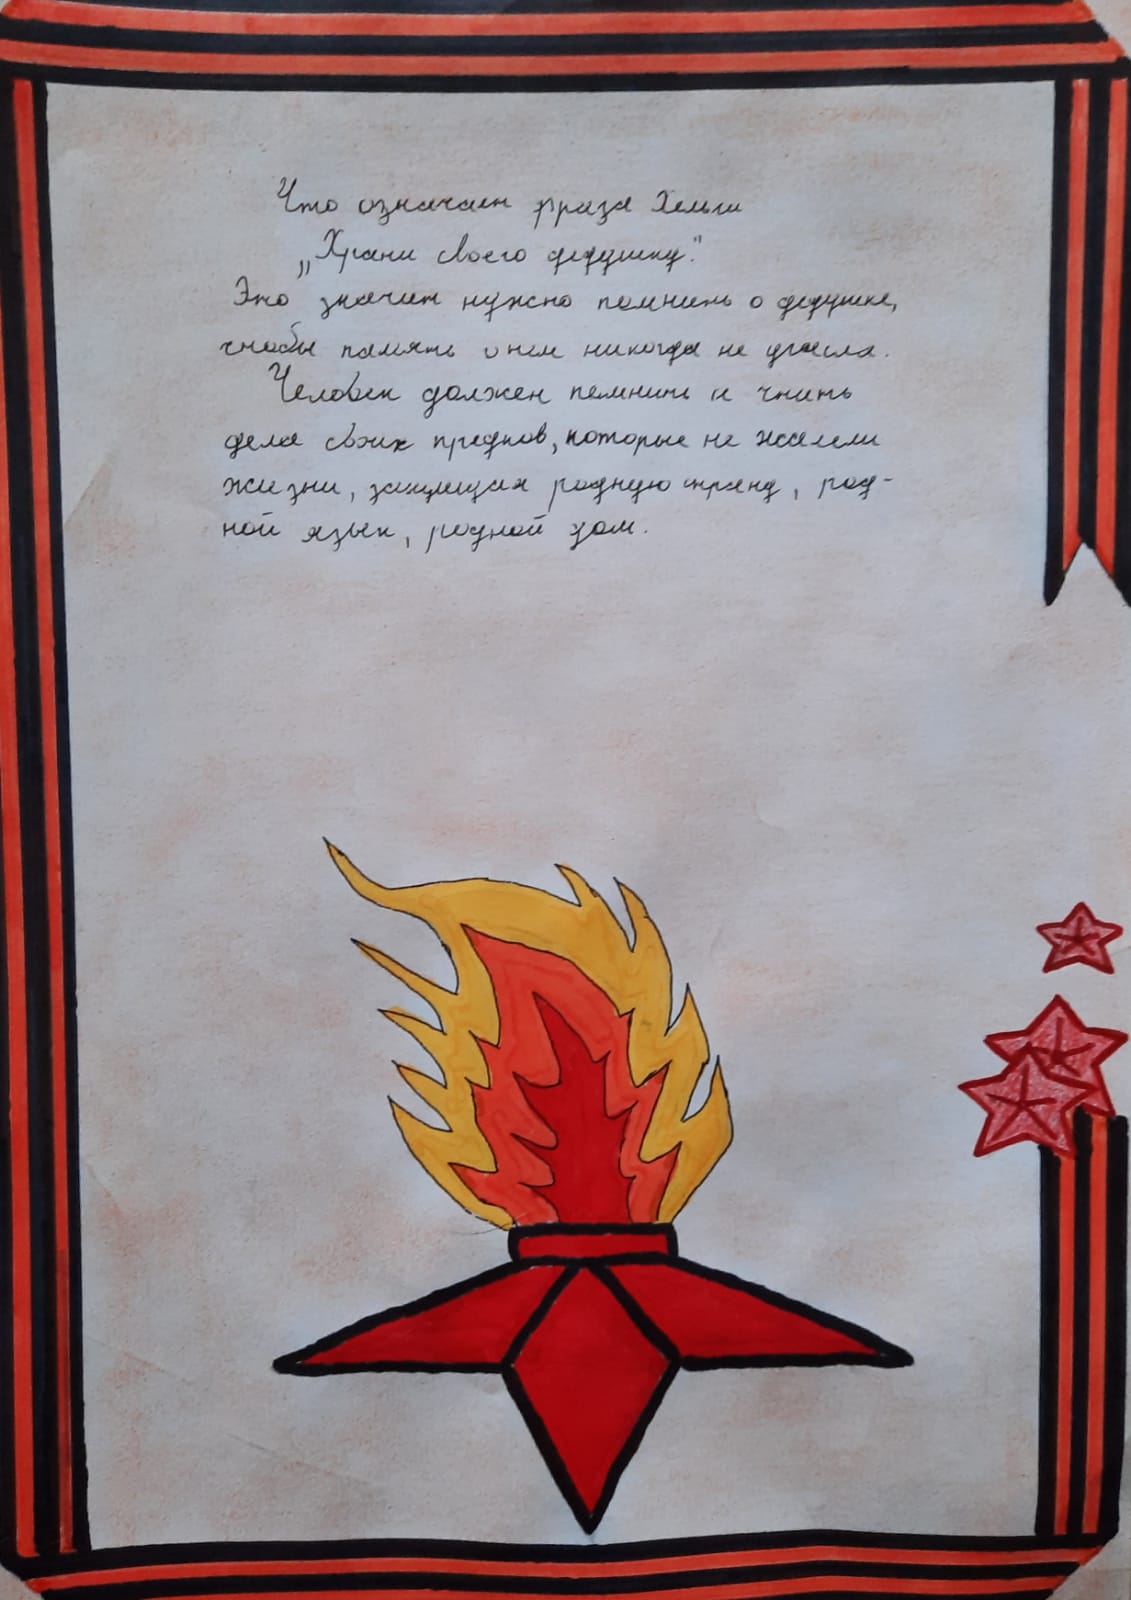 Что означает фраза Хельги
„Храни своего дедушку."
Это значит нужно помнить о дедушке,
чтобы память о нем никогда не угасла.
Человек должен помнить и чтить
дела своих предков, которые не жалели
жизни, защищая родную страну, род-
ной язык, родной дом.